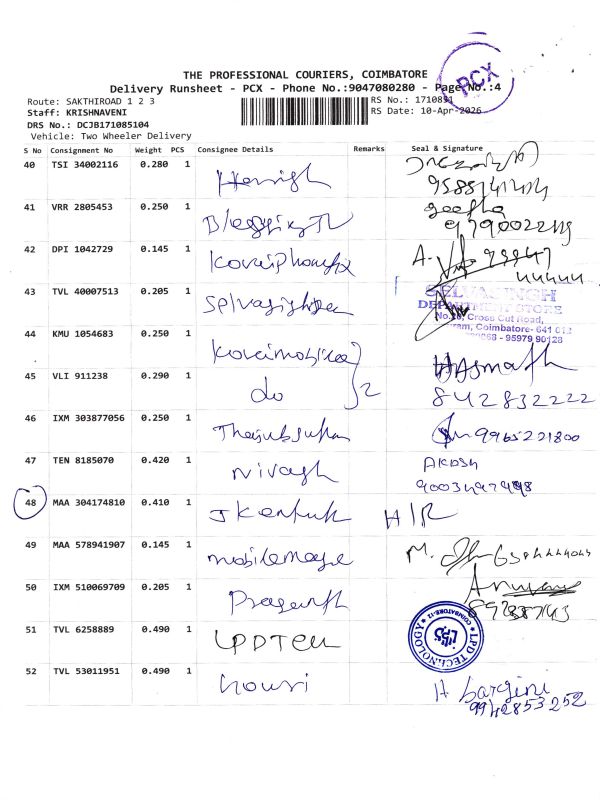 PCX
THE PROFESSIONAL COURIERS, COIMBATORE
Delivery Runsheet - PCX - Phone No.:9047080280 - Page No.:4
Route: SAKTHIROAD 1 2 3
RS No.: 1710891
Staff: KRISHNAVENI
RS Date: 10-Apr-2026
DRS No.: DCJB171085104
Vehicle: Two Wheeler Delivery
S No Consignment No Weight PCS Consignee Details Remarks Seal & Signature
40 TSI 34002116 0.280 1
41 VRR 2805453 0.250 1 geetha
9790022419
42 DPI 1042729 0.145 1 A.
43 TVL 40007513 0.205 1
SELVASINGH
DEPARTMENT STORE
Cross Cut Road,
Coimbatore- 641 012
- 95979 90128
44 KMU 1054683 0.250 1
45 VLI 911238 0.290 1 do 2 Hasmath
842832222
46 IXM 303877056 0.250 1 9965221800
47 TEN 8185070 0.420 1 nivash AKASH
48 MAA 304174810 0.410 1 H/R
49 MAA 578941907 0.145 1 M.
50 IXM 510069709 0.205 1 Prasanth
51 TVL 6258889 0.490 1 LPDTech
LPD TECHNOLOGY
COIMBATORE-12
52 TVL 53011951 0.490 1 H bargini
9942853252